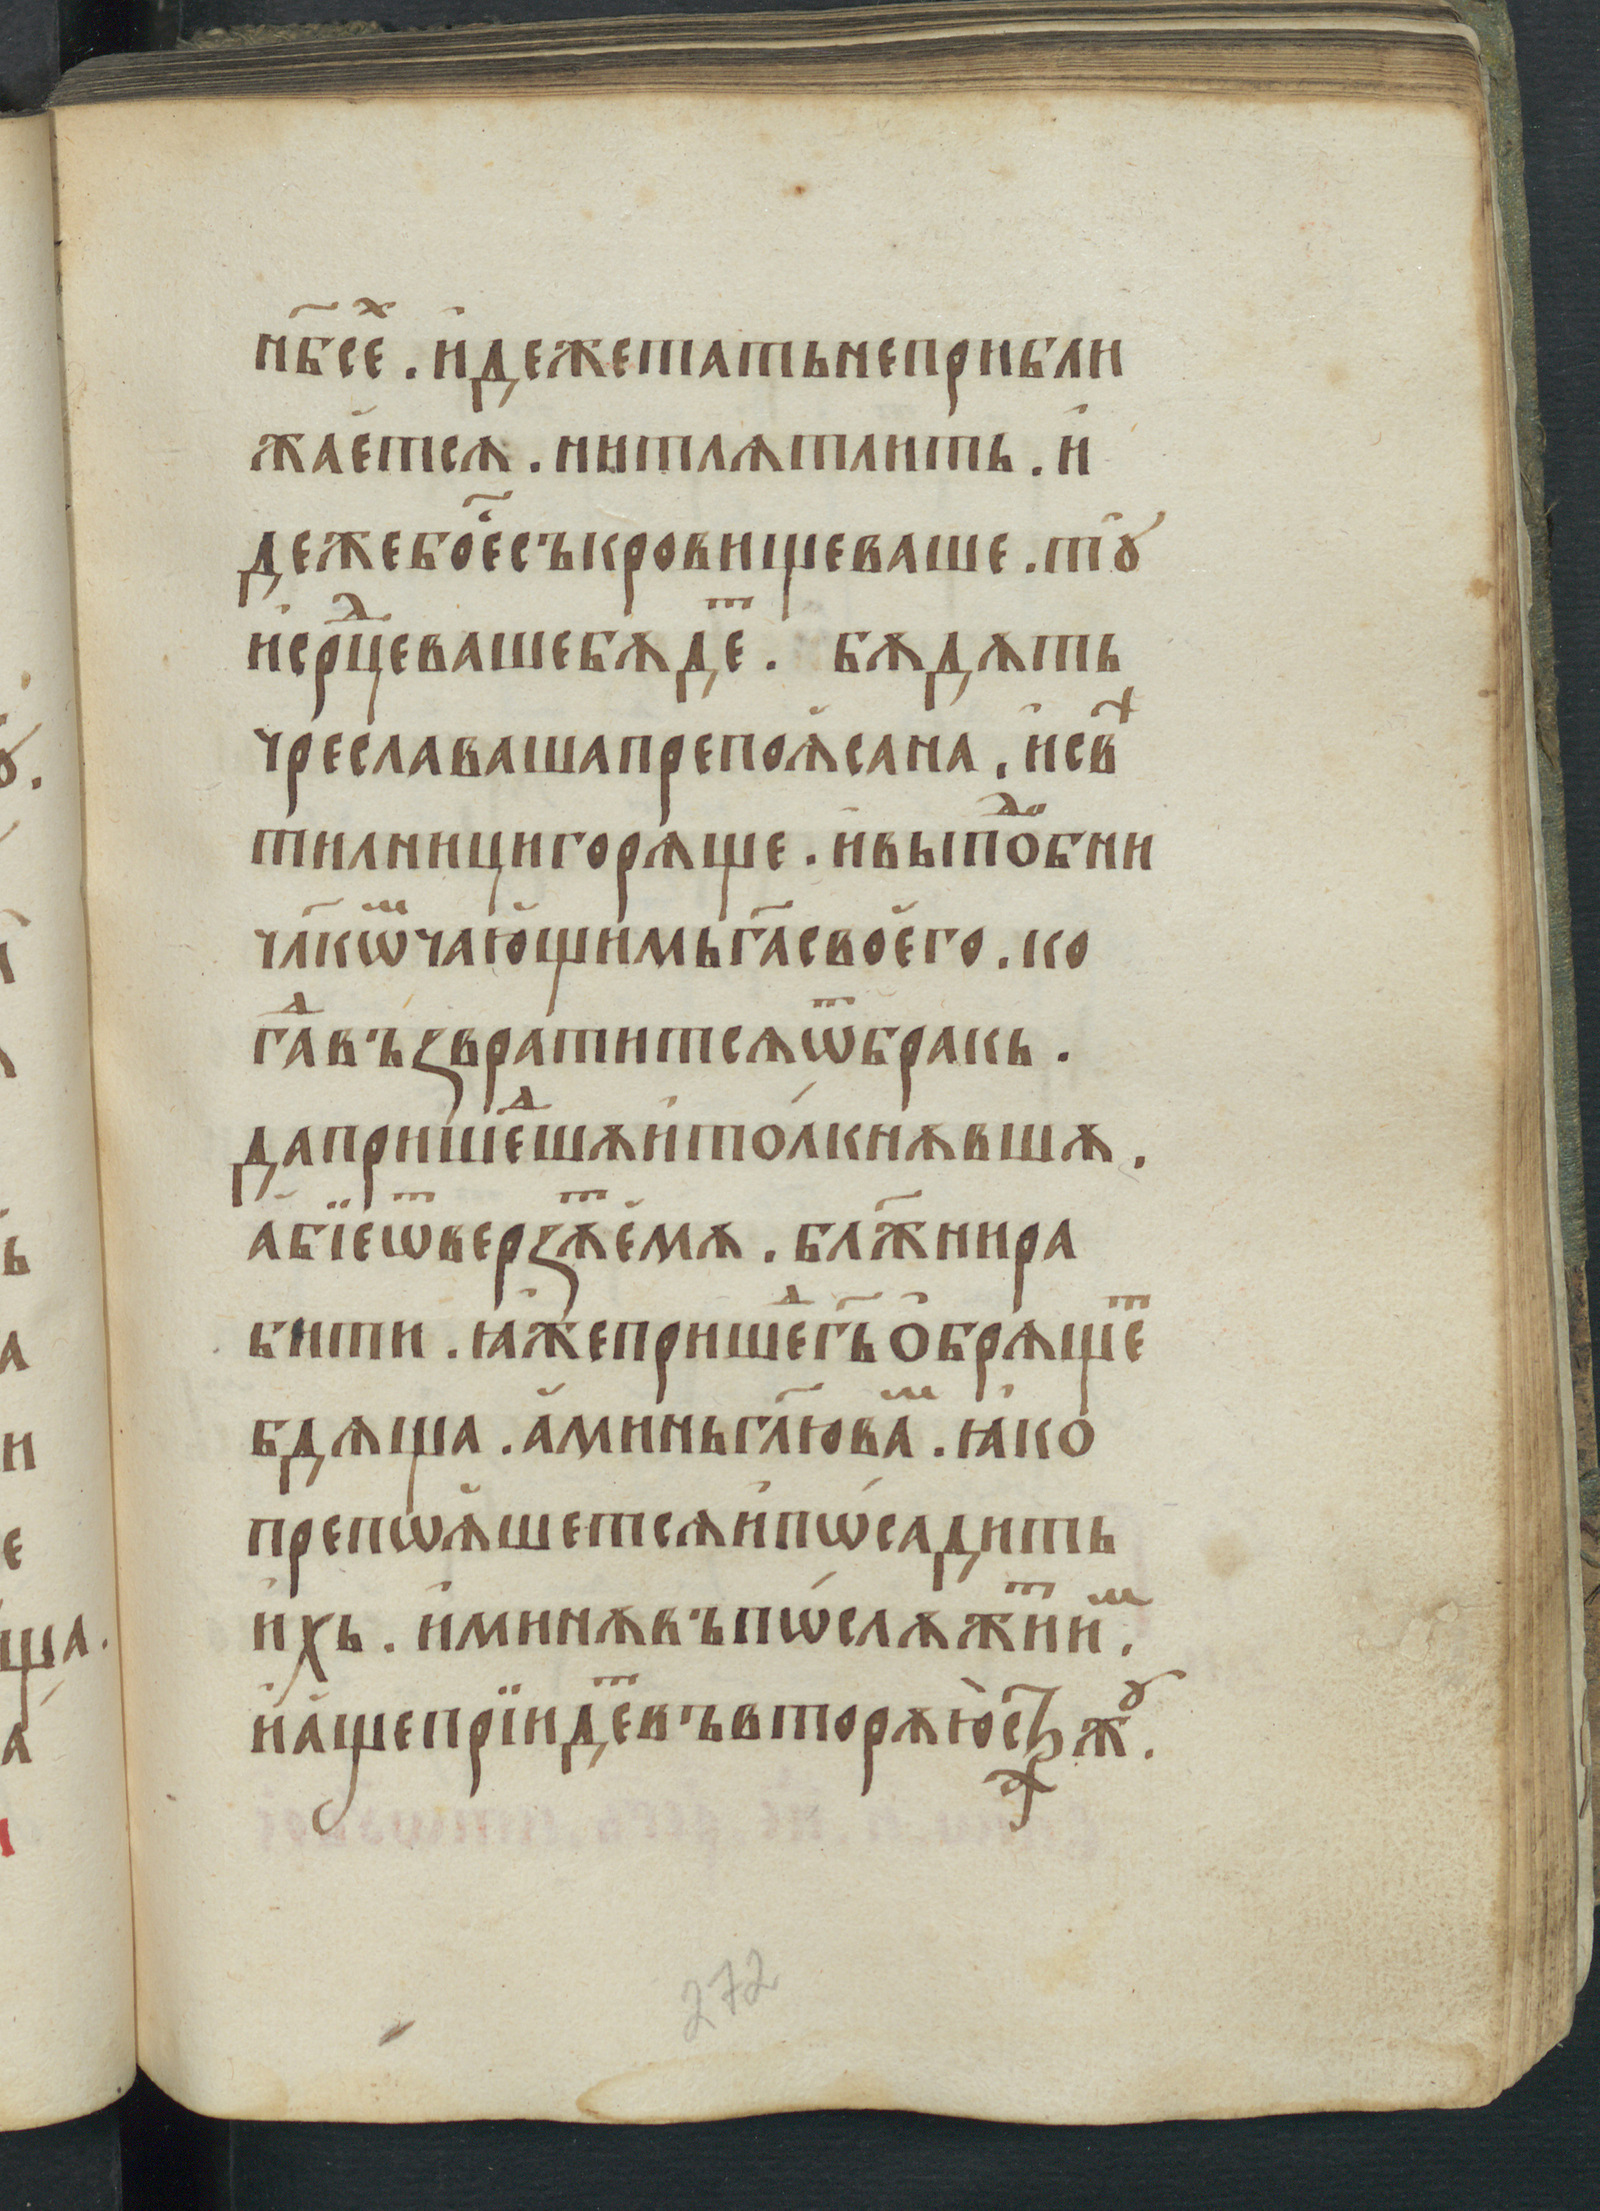 нб҃сеⷯ . и҆дежетатьнеприбли
жае҆тсѧ . нитлѧтлить . и҆
дежебое҆съкровищеваше . тꙋ҆
и҆срⷣцевашебѫдеⷮ . бѫдѫть
чреславашапрепоꙗ҆сана . и҆свⷯ
тилницигорѧще . и҆выпоⷣбни
чл҃кѡⷨчаю҆щимьга҃свое҆го . ко
гаⷣвъꙁвратитсѧѿбракь .
даприше́ⷣшѫи҆то́лкнѫвшѫ .
абїеѿверꙁѫⷮемѫ . блж҃нира
бити . ꙗ҆жепришеⷣгь҃ѻ҆брѧщеⷮ
бдѧща . а҆миньгл҃юваⷨ . ꙗ҆ко
препѡꙗ҆шетсѧи҆пѡ́садить
и҆хь . и҆минѫвъпѡ́слѫжиⷮиⷨ .
и҆а҆щепрїидеⷮвъвторѫю҆стрⷤажꙋ .
272